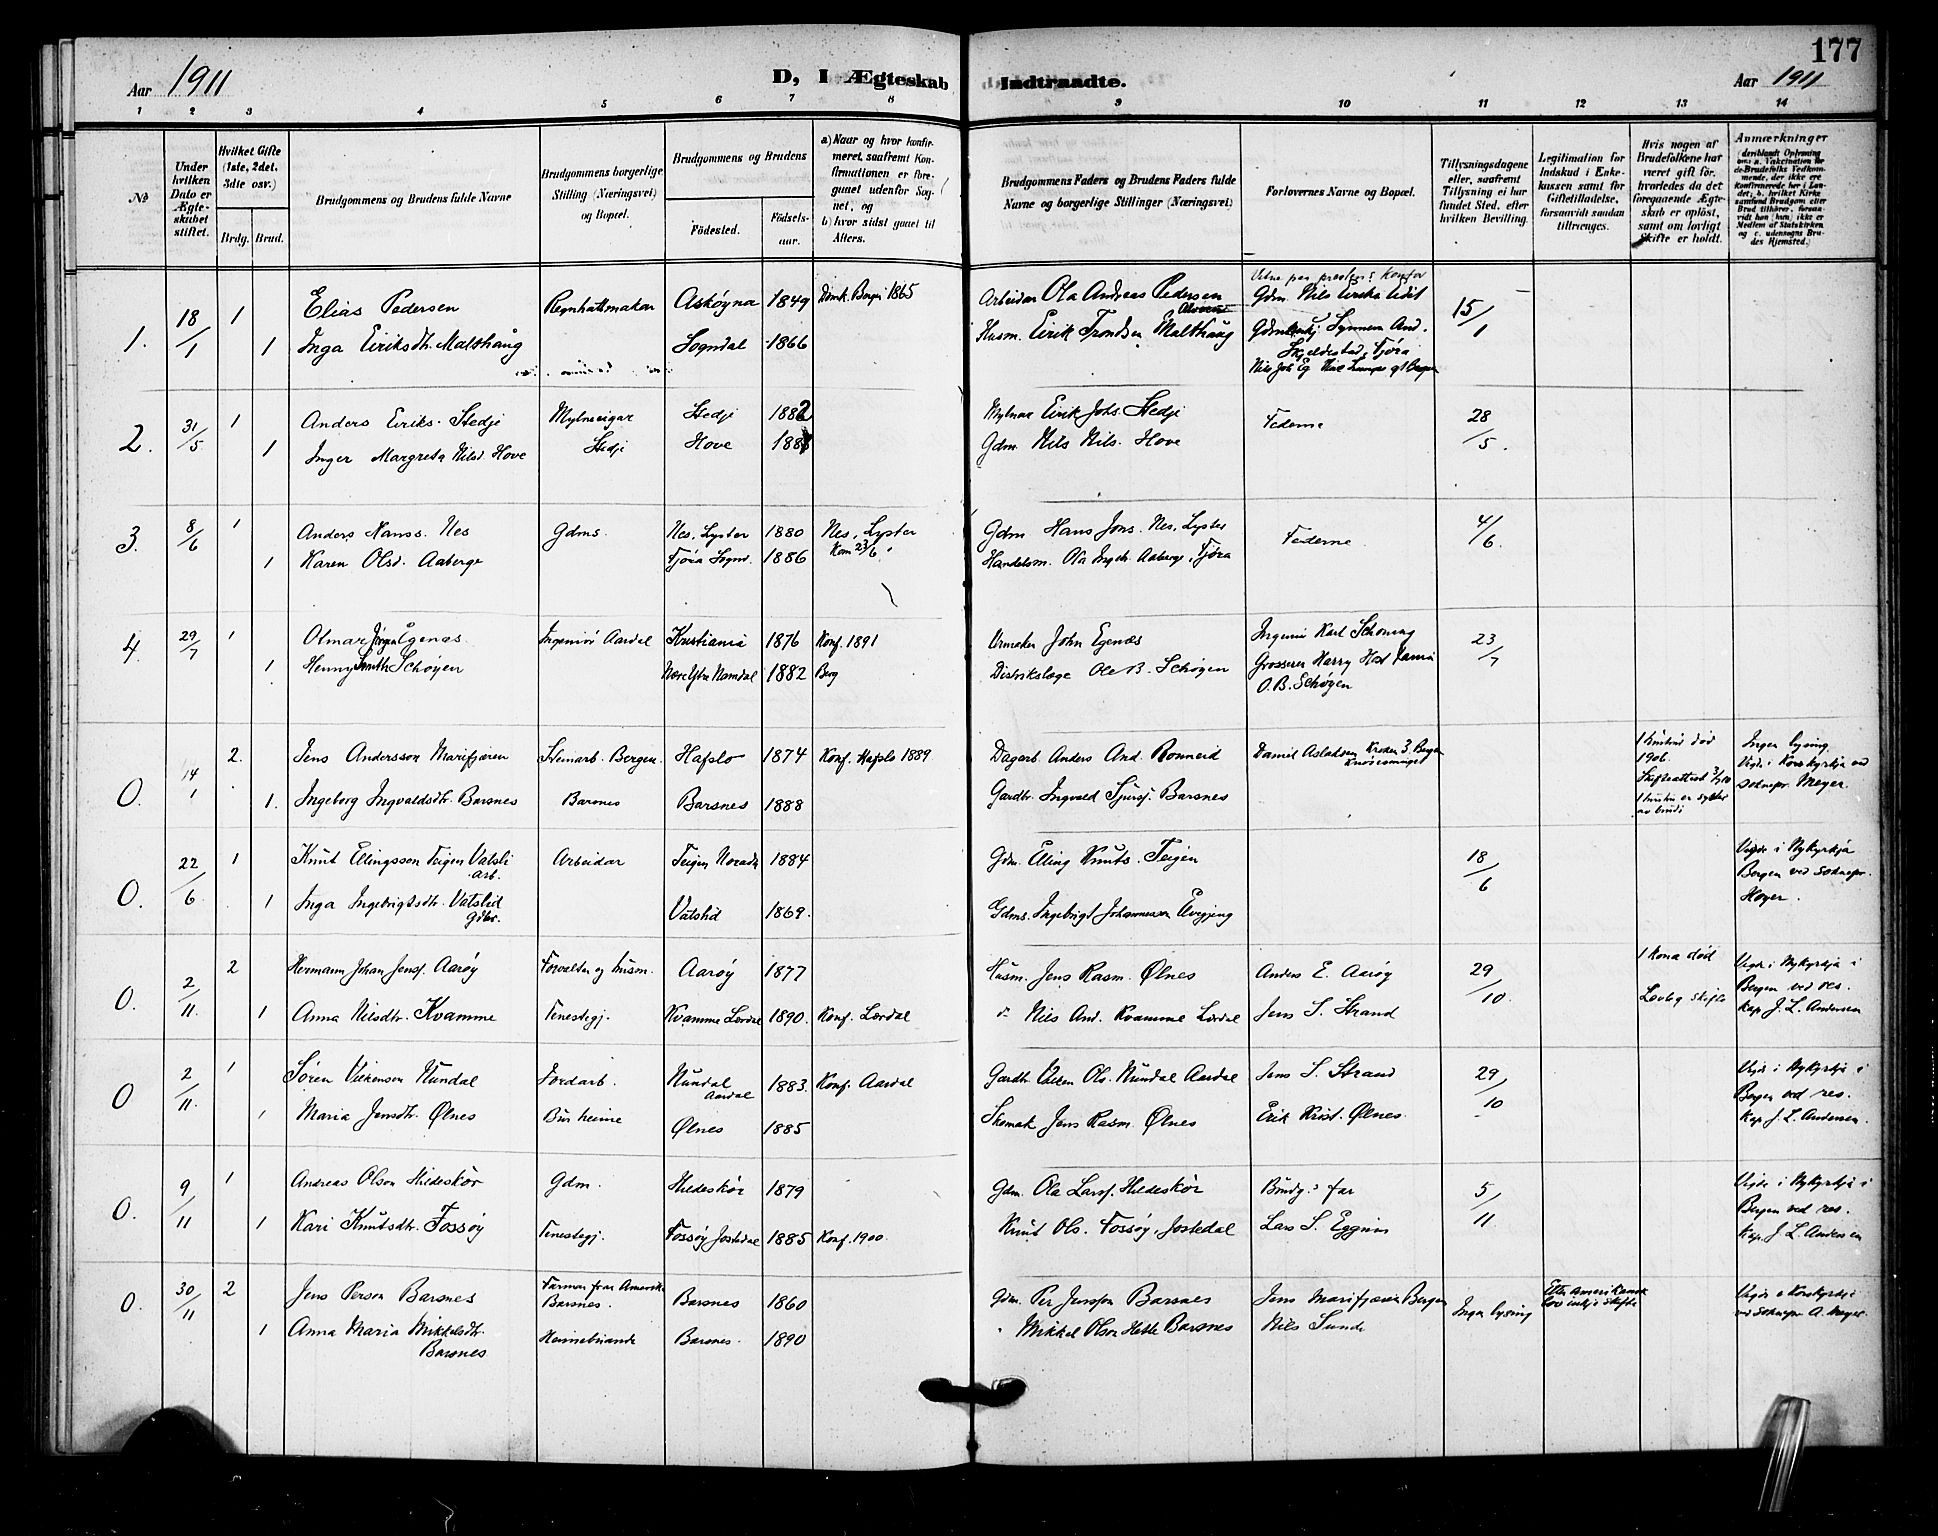 177
Aar 1911
D, I Ægteskab Indtraadte.
Aar 1911
1 2 3 4 5 6 7 8 9 10 11 12 13 14
No
Under hvilken Dato er Ægteskabet stiftet.
Hvilket Gifte (1ste, 2det, 3die osv.)
Brdg. Brud.
Brudgommens og Brudens fulde Navne
Brudgommens borgerlige Stilling (Næringsvei) og Bopæl.
Brudgommens og Brudens
Födested. Födselsaar.
a) Naar og hvor konfirmeret, saafremt Konfirmationen er foregaaet udenfor Sognet, og
b) hvor sidst gaaet til Alters.
Brudgommens Faders og Brudens Faders fulde Navne og borgerlige Stillinger (Næringsvei)
Forlovernes Navne og Bopæl.
Tillysningsdagene eller, saafremt Tillysning ei har fundet Sted, efter hvilken Bevilling.
Legitimation for Indskud i Enkekassen samt for Giftetilladelse, forsaavidt saadan tiltrænges.
His nogen af Brudefolkene har været gift för, hvorledes da det foregaaende Ægteskab er oplöst, samt om lovligt Skifte er holdt.
Anmærkninger
1. 18/1 1 Elias Pedersen Regnhattmakar Askøyna 1849 Domk. Bergen 1865 Arbeidar Ola Andreas Pedersen Gdm. Nils 15/1
1 Inga Eiriksdtr. Malthaug Sogndal 1866 Husm. Eirik Trondsen Malthaug
2. 31/5 1 Anders Eiriks. Stedje Mylneeigar Stedje 1882 Mylnar Eirik Johs. Stedje Federne 28/5
1 Inger Margreta Nilsd. Hove Stedje Hove 188 Gdm. Nils Nils. Hove
3. 8/6 1 Anders Hanss. Nes Gdms. Nes, Lyster 1880 Nes, Lyster Gdm Hans Jons. Nes, Lyster Federne 4/6
1 Karen Olsd. Aaberge Fjøra Sognd. 1886 Kom 23/6 Handelsm. Ola Ingebr. Aaberge, Fjøra
4. 29/7 1 Olmar Jørgen Egenæs Ingeniør Aardal Kristiania 1876 Konf. 1891 Urmaker John Egenæs Ingeniør Karl Schøning 23/7
1 Henny Smith Schøyen Nærø Ytre Namdal 1882 Berg Distriktslæge Ole B. Schøyen Grosserer Harry
O. B. Schøyen
0. 14/1 2. Jens Andersson Marifjæren Steinarb. Bergen. Hafslo 1874 Konf. Hafslo 1889 Dagarb. Anders And. Ronneid Daniel Aslaksen Kroken 3, Bergen 1 hustru død 1906. Ingen lysing.
1. Ingeborg Ingvaldsdtr. Barsnes Barsnes Barsnes 1888 Gardbr. Ingvald Sjursf. Barsnes Skifteattest Vigde i Korskyrkja ved soknepr. Meyer.
1 hustru er syster av brudi
0. 22/6 1 Knut Ellingsson Teigen Vatsli arb. Arbeidar Teigen Norade 1884 Gdm. Elling Knuts. Teigen 18/6 Vigde i Nykyrkja
1 Inga Ingebrigtsdtr. Vatslid Vatslid 1869. Gdms. Ingebrigt Johannesen Bergen ved soknepr. Høyer.
0. 2/11. 2 Hermann Johan Jensf. Aarøy Forvalter og husm. Aarøy 1877 Husm. Jens Rasm. Ølnes Anders E. Aarøy 29/10. 1 kona død Vigde i Nykyrkja i
1 Anna Nilsdtr. Kvamme Tenestegj. Kvamme Lærdal 1890. Konf. Lærdal " Nils And. Kvamme Lærdal Jens S. Strand Lovleg skifte Bergen ved res. kap. J. L. Andersen
0 2/11. 1 Søren Vikenson Nundal Jordarb. Nundal Aardal 1883. Konf. Aardal Gardbr. Ols. Nundal Aardal Jens S. Strand 29/10 Vigde i Nykyrkja i
1 Maria Jensdtr. Ølnes Bur heime Ølnes 1885 Skomak Jens Rasm. Ølnes Erik Krist. Ølnes. Bergen ved res. kap. J. L. Andersen.
0. 9/11 1 Andreas Olson Hildeskør Gdm. Hildeskør 1879 Gdm. Ola Larsf. Hildeskør Brudg.s far 5/11 Vigde i Nykyrkja i
1 Kari Knutsdtr. Fossøy Tenestegj. Fossøy Jostedal 1885 Konf. 1900. Knut Ols. Fossøy, Jostedal Lars S. Eggum Bergen ved res. kap. J. L. Andersen
0. 30/11 2 Jens Person Barsnes Farmar fraa Amerika Barsnes. Barsnes 1860 Gdm. Per Jensson Barsnes Jens Marifjæren Bergen Ingen lysing Etter Amerikansk lov inkje skifte Vigde i Korskyrkja
1 Anna Maria Mikkelsdtr. Barsnes Heimebuande Barsnes. 1890 " Mikkel Olson Hotle Barsnes Nils Sunde ved soknepr. A. Meyer.